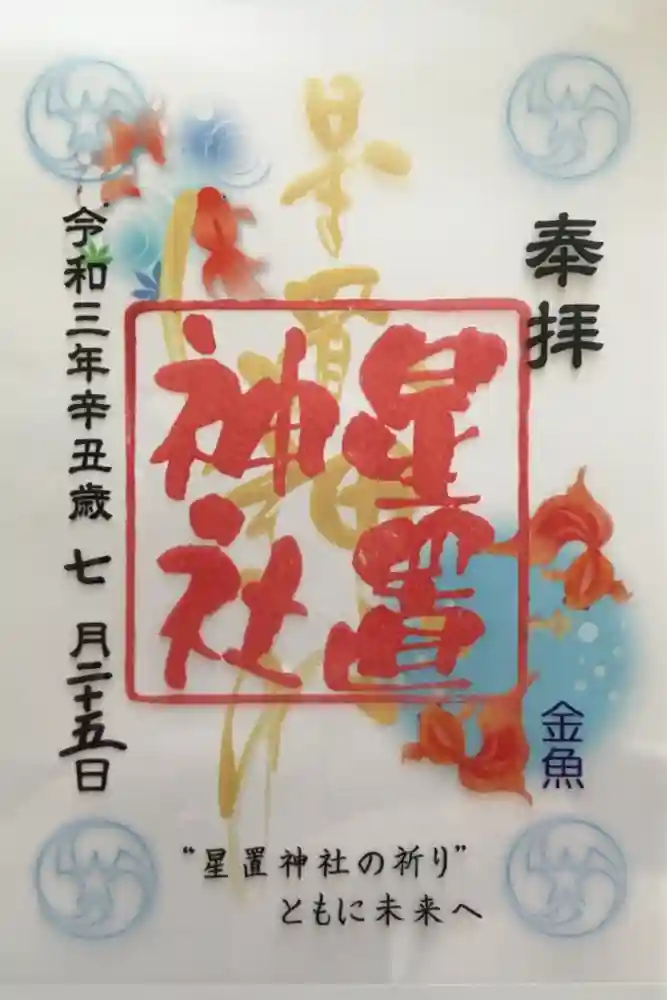 奉拝
星置
神社
星置神社
金魚
令和三年辛丑歳 七 月二十五日
“星置神社の祈り”
ともに未来へ